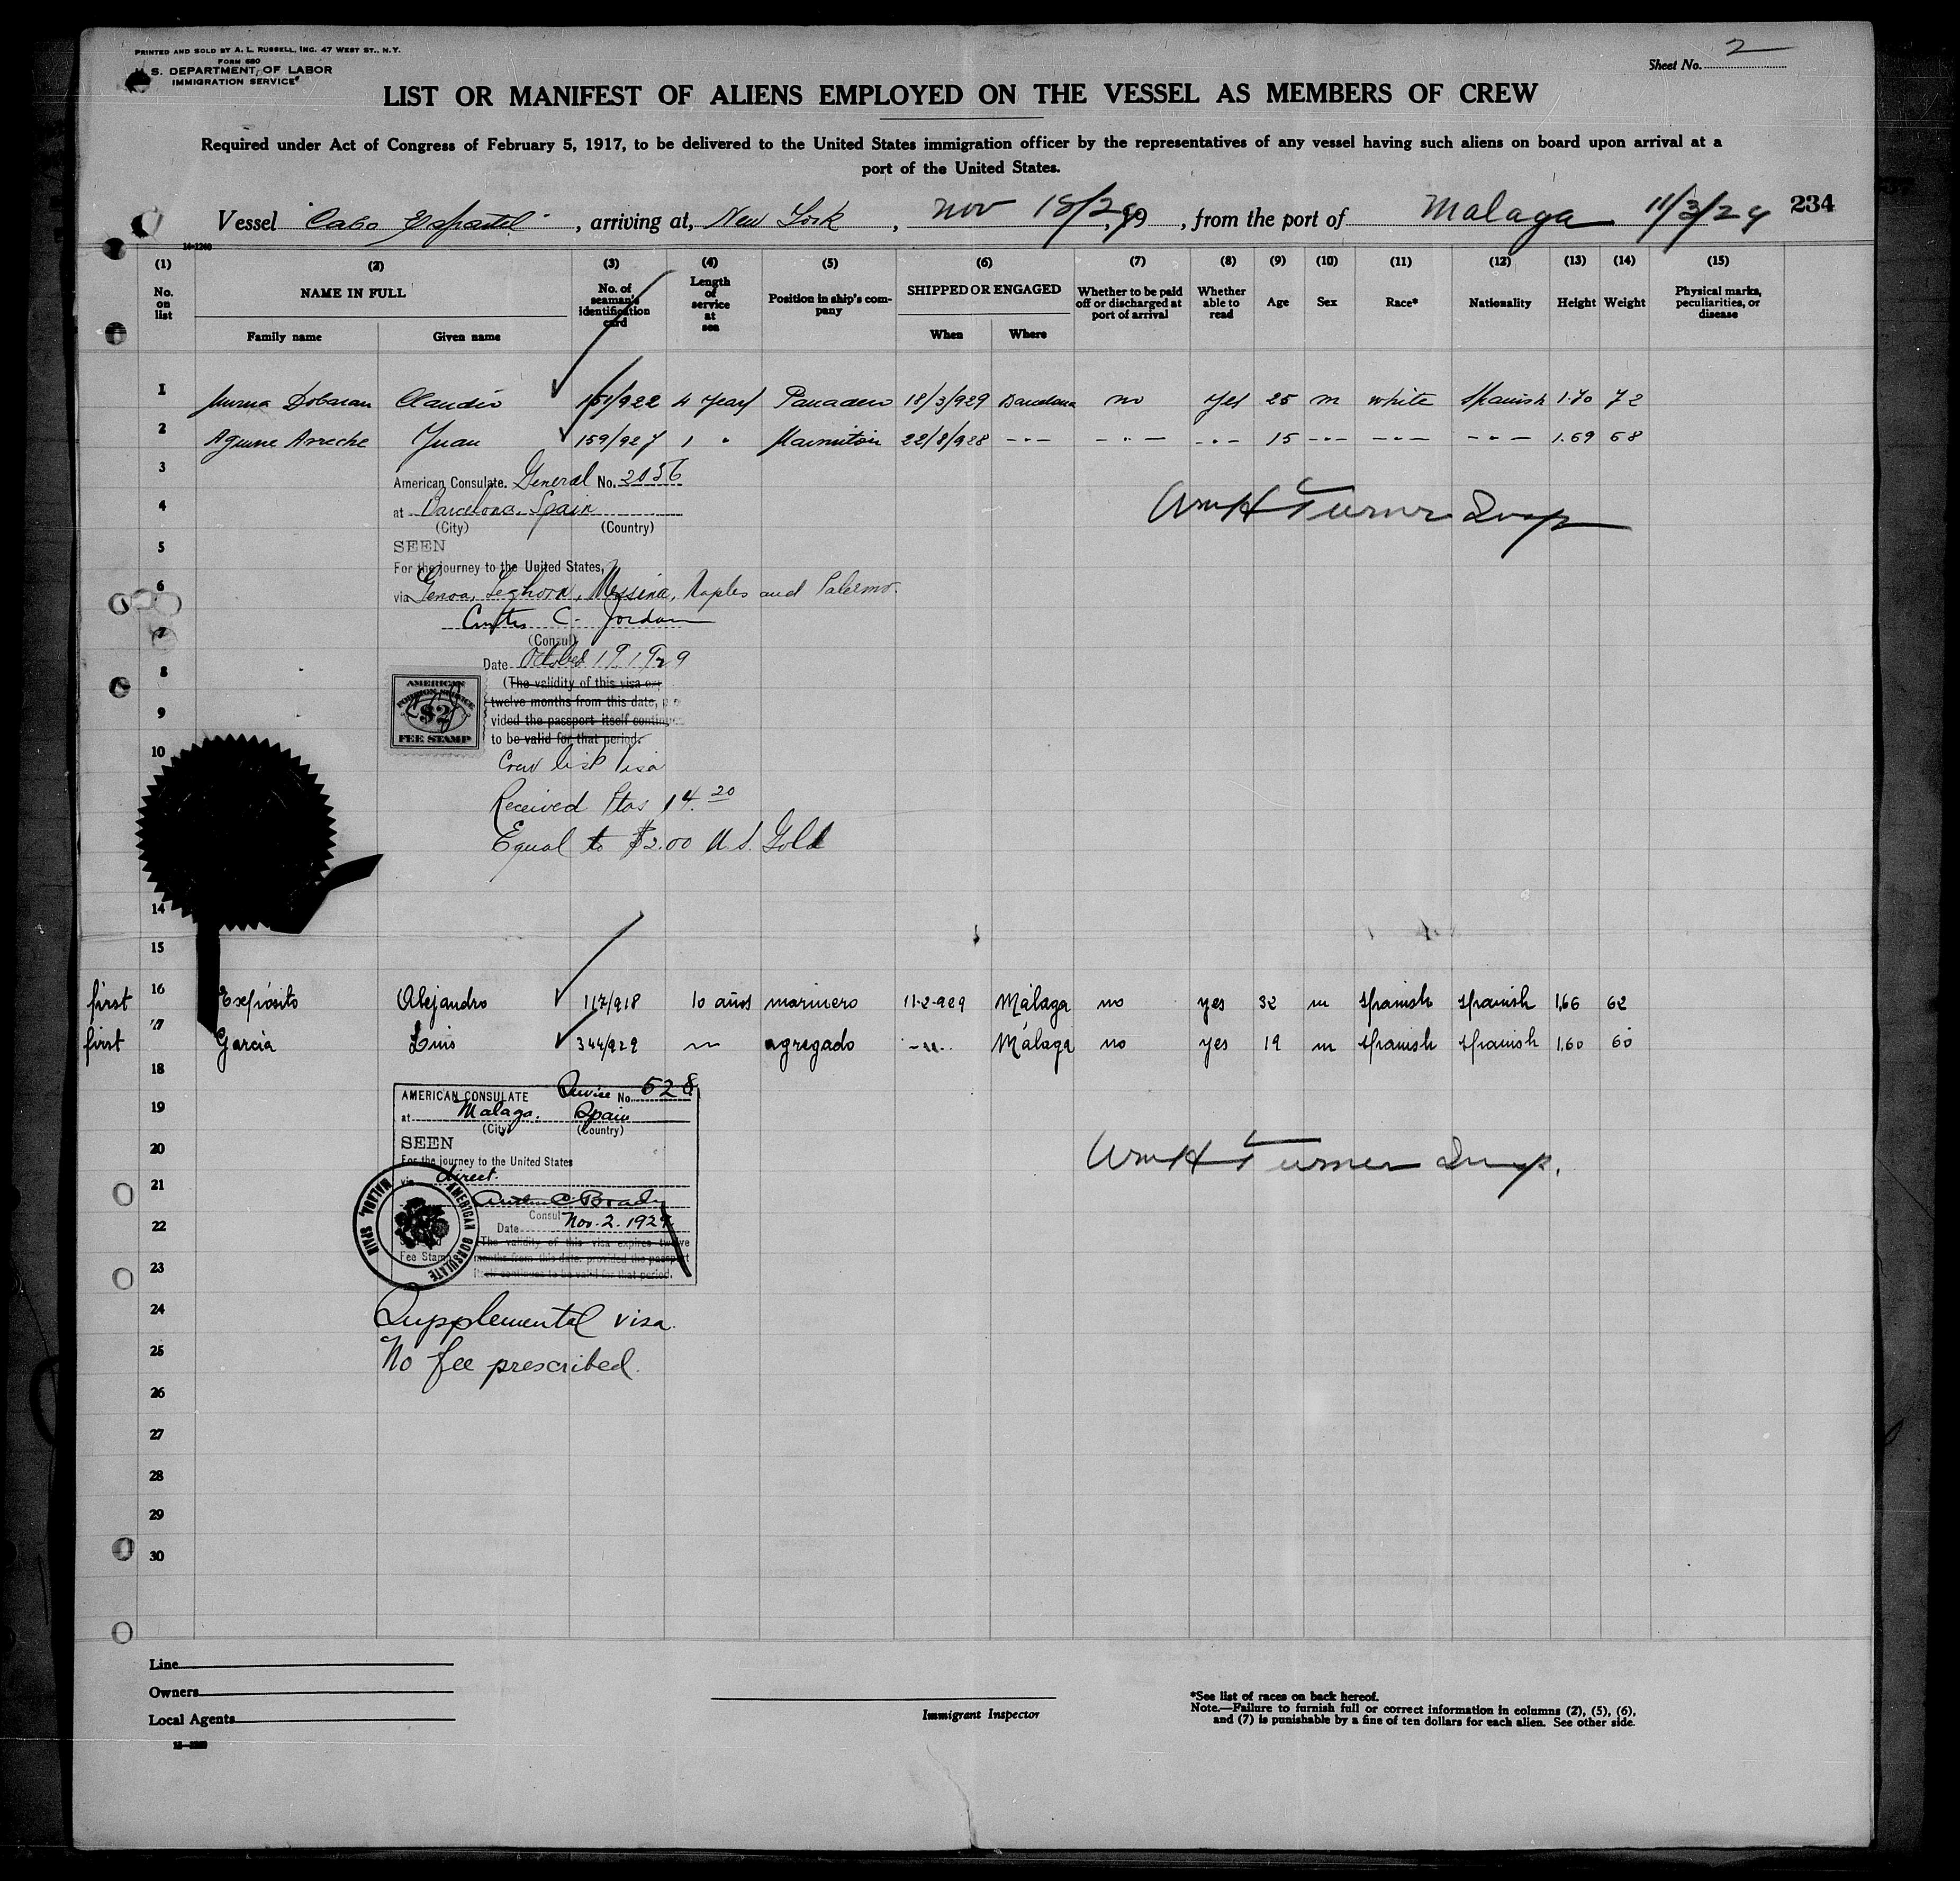 PRINTED AND SOLD BY A. L. RUSSELL, INC. 47 WEST ST., N.Y.
FORM 680
U. S. DEPARTMENT OF LABOR
IMMIGRATION SERVICE
Sheet No. 2
LIST OR MANIFEST OF ALIENS EMPLOYED ON THE VESSEL AS MEMBERS OF CREW
Required under Act of Congress of February 5, 1917, to be delivered to the United States immigration officer by the representatives of any vessel having such aliens on board upon arrival at a
port of the United States.
Vessel "Cabo Espartel", arriving at, New York, Nov 18/29, 19 , from the port of Malaga 11/3/29 234
14-1240
(1) (2) (3) (4) (5) (6) (7) (8) (9) (10) (11) (12) (13) (14) (15)
No. on list NAME IN FULL Family name Given name No. of seaman's identification card Length of service at sea Position in ship's company SHIPPED OR ENGAGED When Where Whether to be paid off or discharged at port of arrival Whether able to read Age Sex Race* Nationality Height Weight Physical marks, peculiarities, or disease
1 Dobaran Claudio 151/922 4 years Panadero 18/3/929 Barcelona no yes 25 m white Spanish 1.70 72
2 Aguirre Arreche Juan 159/927 1 " Marmitón 22/8/928 -"- -"- -"- 15 -"- -"- -"- 1.69 68
3
American Consulate. General No. 2036
4
at Barcelona, Spain
(City) (Country)
Wm H Turner Insp
5
SEEN
For the journey to the United States,
6
via Genoa, Leghorn, Messina, Naples and Palermo.
7
Curtis C. Jordan
(Consul)
8
Date October 19, 1929
(The validity of this visa ex
AMERICAN FOREIGN SERVICE $2 FEE STAMP
twelve months from this date, pro
9
vided the passport itself continues
to be valid for that period.
10
Crew list visa
Received Ptas 14.20
Equal to $2.00 U.S. Gold
14
15
first 16 Expósito Alejandro 117/918 10 años marinero 11-2-929 Málaga no yes 32 m Spanish Spanish 1,66 62
first 17 García Luis 344/929 agregado -"- Málaga no yes 19 m Spanish Spanish 1,60 60
18
AMERICAN CONSULATE Service No. 528
19
at Malaga. Spain
(City) (Country)
20
SEEN
For the journey to the United States
Wm H Turner Insp.
21
via direct.
Austin C Brady
Consul
22
Date Nov. 2. 1929
(The validity of this visa expires twelve
Fee Stamp months from this date, provided the passport
23
itself continues to be valid for that period.
AMERICAN CONSULATE MALAGA, SPAIN
24
Supplemental visa.
25
No fee prescribed.
26
27
28
29
30
Line
Owners
Local Agents
Immigrant Inspector
*See list of races on back hereof.
Note.—Failure to furnish full or correct information in columns (2), (5), (6),
and (7) is punishable by a fine of ten dollars for each alien. See other side.